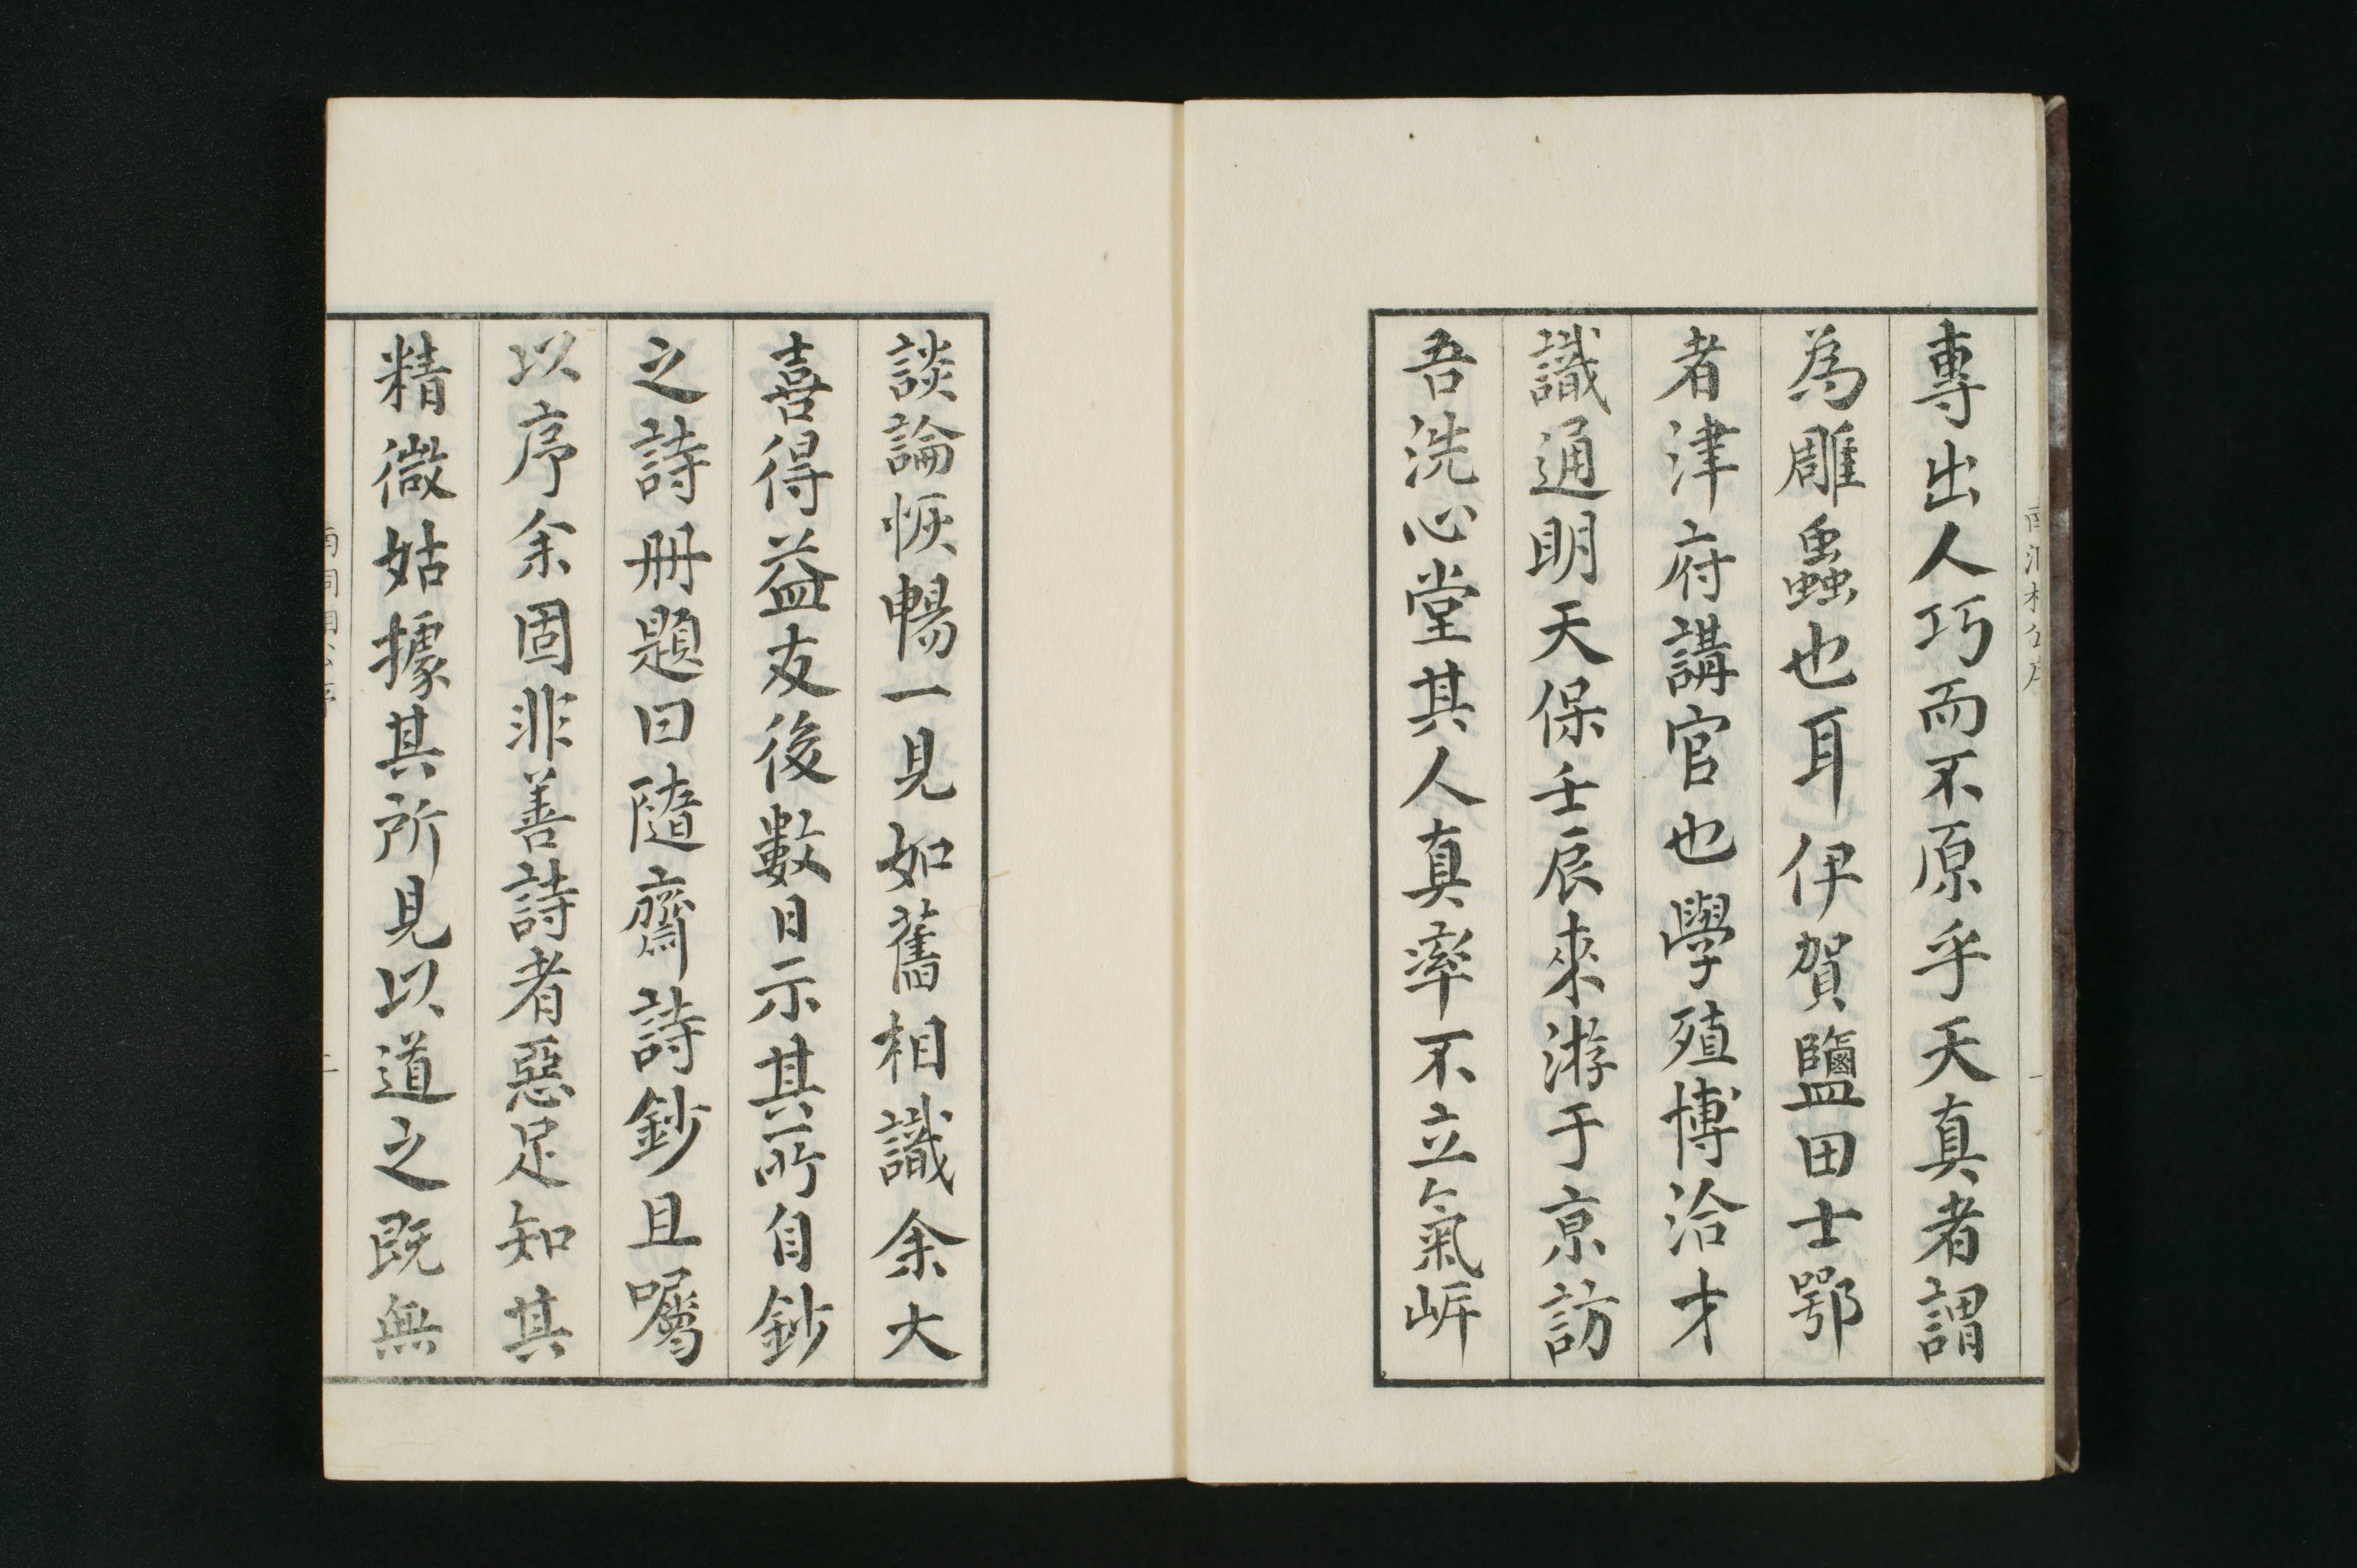 專出人巧而不原乎天真者謂
為雕蟲也耳伊賀鹽田士鄂
者津府講官也學殖博洽才
識通明天保壬辰來游于京訪
吾洗心堂其人真率不立氣岸
談論恢暢一見如舊相識余大
喜得益友後數日示其所自鈔
之詩册題曰隨齋詩鈔且囑
以序余固非善詩者惡足知其
精微姑據其所見以道之既無